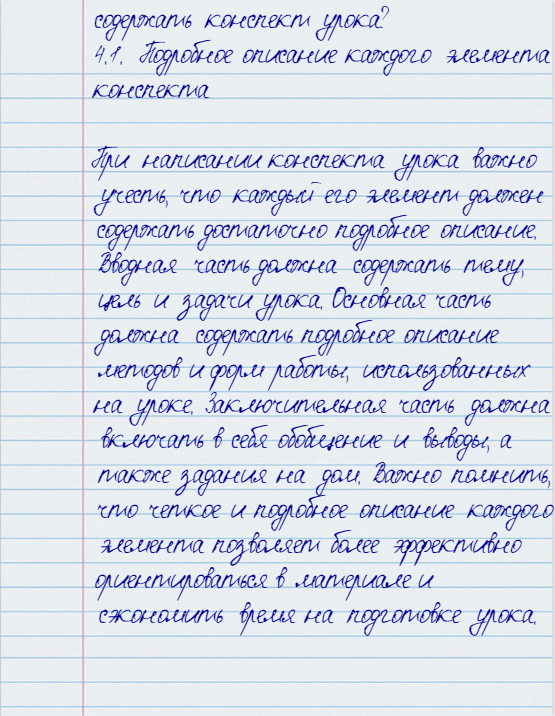 содержать конспект урока?
4.1. Подробное описание каждого элемента
конспекта
При написании конспекта урока важно
учесть, что каждый его элемент должен
содержать достаточно подробное описание.
Вводная часть должна содержать тему,
цель и задачи урока. Основная часть
должна содержать подробное описание
методов и форм работы, использованных
на уроке. Заключительная часть должна
включать в себя обобщение и выводы, а
также задания на дом. Важно помнить,
что четкое и подробное описание каждого
элемента позволяет более эффективно
ориентироваться в материале и
сэкономить время на подготовке урока.